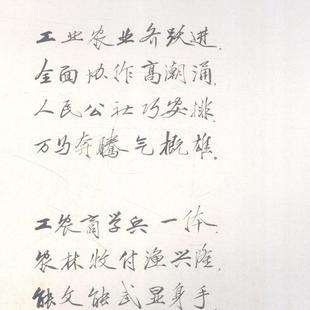 工业农业齐跃进.
全面协作高潮涌.
人民公社巧安排.
万马奔腾气概雄.
工农商学兵一体.
农林牧付渔兴隆.
能文能武显身手